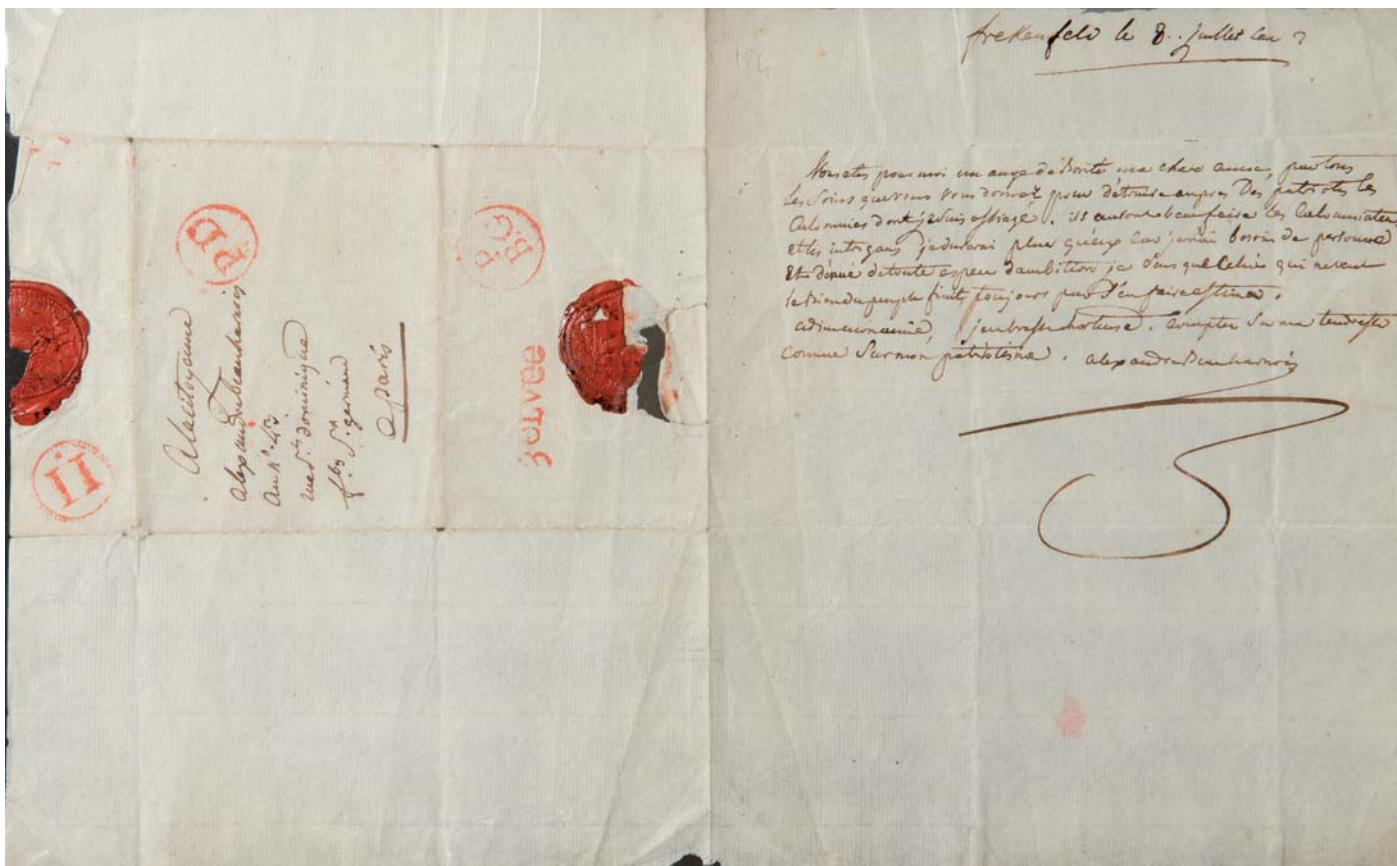 A la citoyenne
alexandre beauharnais
au n°. 43
rue St. dominique
fbg St. germain
a paris
P.D
II
P.
B.G
3e LVée
186
frekenfeld le 8.. juillet lan 2
Vous etes pour moi un ange de bonté ma chere amie, par tous
les Soins que vous vous donnez pour détruire aupres Des patriotes les
Calomnies dont je suis affligé. ils auront beau faire les Calomniateurs
et les intrigans je durerai plus qu'eux car jamais besoin de personne
Et dénué de toute espece d'ambition je sens que Celui qui ne veut
le Bien du peuple finit toujours par s'en faire estimer.
adieu mon amie, j'embrasse hortense. Comptez Sur ma tendresse
comme Sur mon patriotisme. alexandre Beauharnois